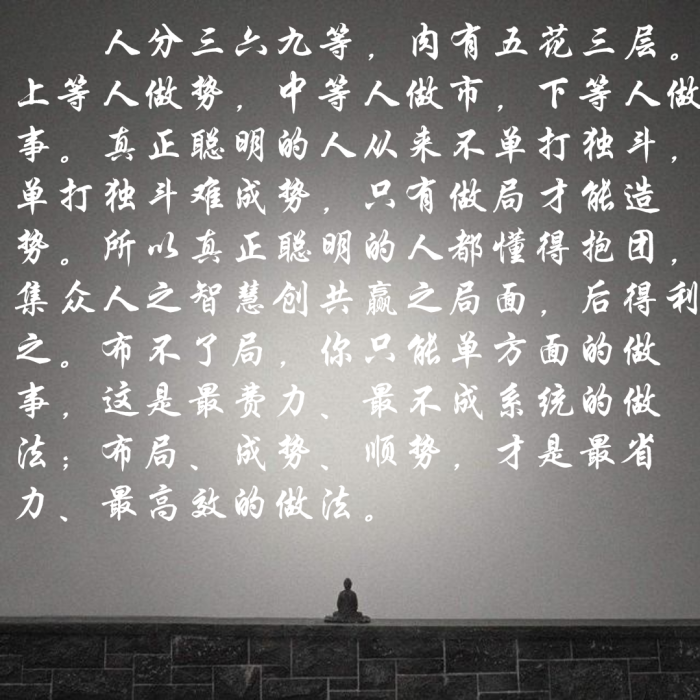 人分三六九等，肉有五花三层。
上等人做势，中等人做市，下等人做
事。真正聪明的人从来不单打独斗，
单打独斗难成势，只有做局才能造
势。所以真正聪明的人都懂得抱团，
集众人之智慧创共赢之局面，后得利
之。布不了局，你只能单方面的做
事，这是最费力、最不成系统的做
法；布局、成势、顺势，才是最省
力、最高效的做法。